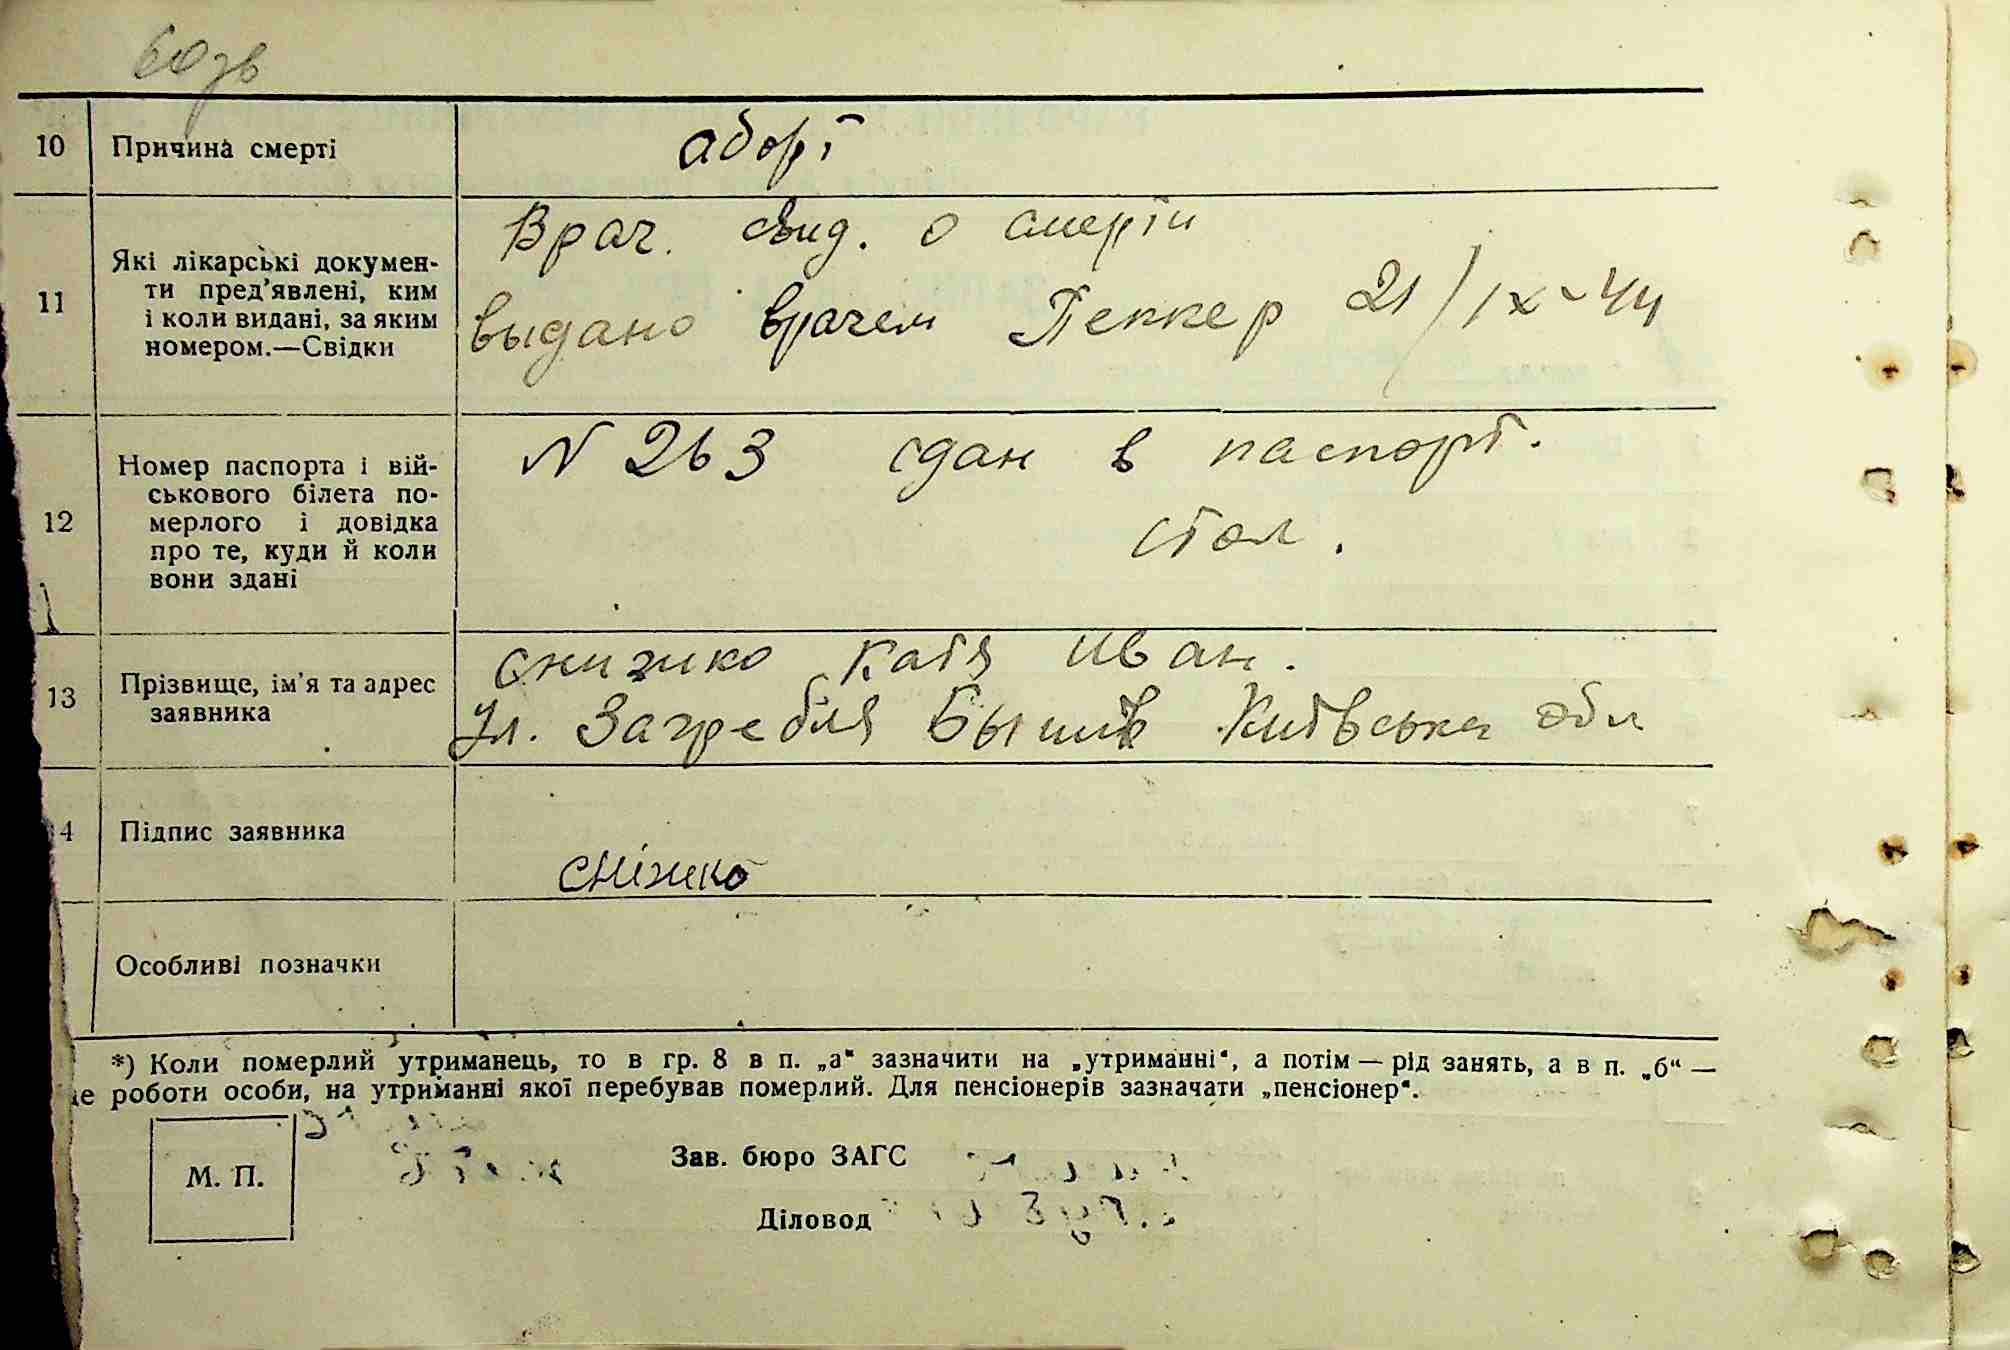 60зв
10 Причина смерті аборт
11 Які лікарські докумен-
ти пред'явлені, ким
і коли видані, за яким
номером.—Свідки
Врач. свид. о смерти
выдано врачем Пеккер 21/IX-44
12 Номер паспорта і вій-
ськового білета по-
мерлого і довідка
про те, куди й коли
вони здані
N 263 сдан в паспорт.
стол.
13 Прізвище, ім'я та адрес
заявника
Снижко Катя Иван.
Ул. Загребля Бышів Київська обл
4 Підпис заявника
Сніжко
Особливі позначки
*) Коли померлий утриманець, то в гр. 8 в п. „а“ зазначити на „утриманні“, а потім — рід занять, а в п. „б“ —
це роботи особи, на утриманні якої перебував померлий. Для пенсіонерів зазначати „пенсіонер“.
М. П.
Зав. бюро ЗАГС
Діловод